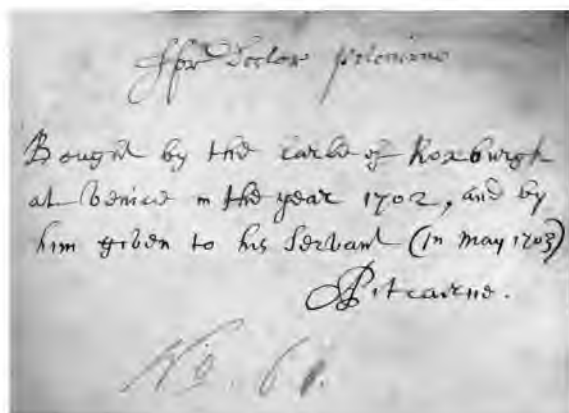 ffor Doctor pitcairne
Bought by the earle of Roxburgh
at Venice in the year 1702, and by
him given to his Servant (in may 1703)
APitcairne.
No. 6